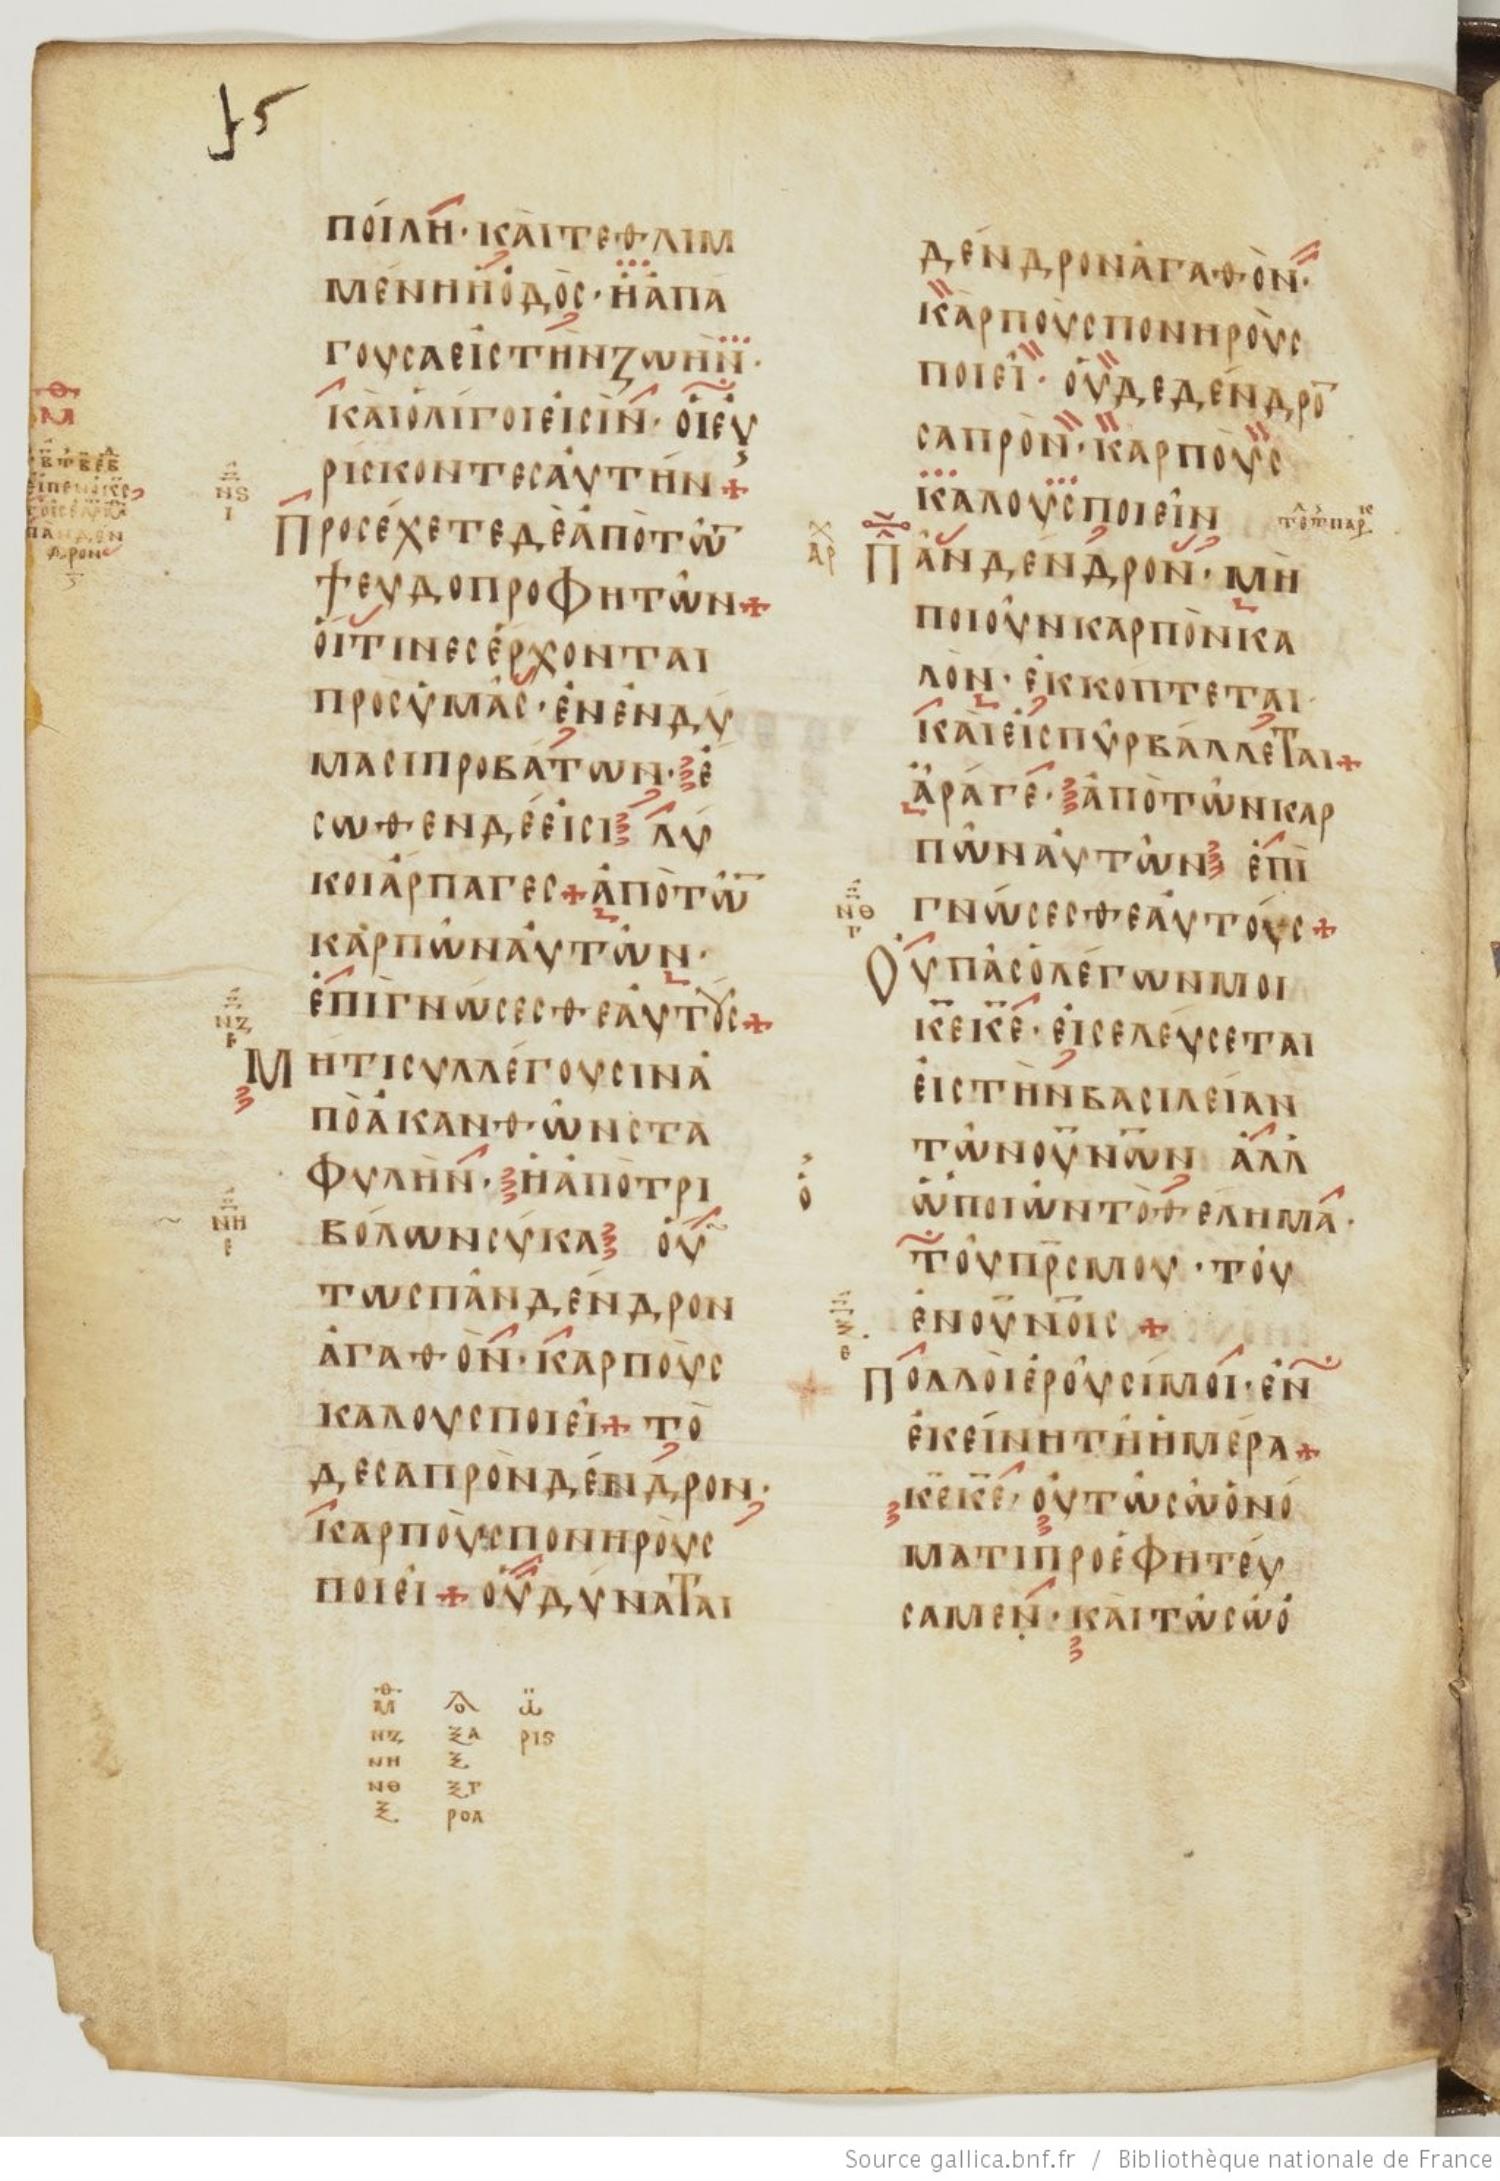 ΠΌΙΛΗ· ΚΑῚΤΕΘΛΙΜ
ΜΈΝΗἩὉΔῸΣ· ἩἈΠΆ
ΓΟΥΣΑΕἸΣΤῊΝΖΩΗΝ·
ΚΑῚὈΛΊΓΟΙΕἸΣῚΝ· ὉΙΕΥ̓
ΡΊΣΚΟΝΤΕΣΑΥ̓ΤΉΝ+
ΠΡΟΣΈΧΕΤΕΔῈἈΠῸΤΩ̅
ΨΕΥΔΟΠΡΟΦΗΤΩ͂Ν+
ὉΙΤΙΝΕΣἜΡΧΟΝΤΑΙ
ΠΡΟΣὙΜΑ͂Σ· ἘΝἘΝΔΎ
ΜΑΣΙΠΡΟΒΆΤΩΝ· Ἔ
ΣΩΘΕΝΔΈΕἸΣΙ ΛΎ
ΚΟΙἍΡΠΑΓΕΣ+ἈΠῸΤΩ̅
ΚΑΡΠΩ͂ΝΑΥ̓ΤΩ͂Ν·
ἘΠΙΓΝΏΣΕΣΘΕΑΥ̓ΤΟΥΣ+
ΜΗΤΙΣΥΛΛΈΓΟΥΣΙΝἈ
ΠῸἈΚΑΝΘΩ͂ΝΣΤΑ
ΦΥΛῊΝ· ἪἈΠῸΤΡΙ
ΒΌΛΩΝΣΥ͂ΚΑ ΟὙ
ΤΩΣΠΑ͂ΝΔΈΝΔΡΟΝ
ἈΓΑΘῸΝ· ΚΑΡΠΟῪΣ
ΚΑΛΟΥΣΠΟΙΕΙ͂+ ΤῸ
ΔΕΣΑΠΡῸΝΔΈΝΔΡΟΝ·
ΚΑΡΠΟῪΣΠΟΝΗΡΟῪΣ
ΠΟΙΕΙ͂+ ΟΥ̓ΔΎΝΑΤΑΙ
ΔΈΝΔΡΟΝἈΓΑΘῸΝ·
ΚΑΡΠΟῪΣΠΟΝΗΡΟῪΣ
ΠΟΙΕΙ͂· ΟΥ̓ΔΕΔΈΝΔΡΟ̅
ΣΑΠΡῸΝ· ΚΑΡΠΟῪΣ
ΚΑΛΟΥΣΠΟΙΕΙ͂Ν
ΠΑ͂ΝΔΈΝΔΡΟΝ· ΜῊ
ΠΟΙΟΥ͂ΝΚΑΡΠῸΝΚΑ
ΛῸΝ· ἘΚΚΌΠΤΕΤΑΙ
ΚΑῚΕἸΣΠΥ͂ΡΒΆΛΛΕΤΑΙ+
ἌΡΑΓΕ· ἈΠῸΤΩ͂ΝΚΑΡ
ΠΩ͂ΝΑΥ̓ΤΩ͂Ν ἘΠΙ
ΓΝΏΣΕΣΘΕΑΥ̓ΤΟΎΣ+
ΟΥ̓ΠΑ͂ΣὉΛΈΓΩΝΜΟΙ
Κ̅Ε̅Κ̅Ε̅· ΕἸΣΕΛΕΎΣΕΤΑΙ
ΕἸΣΤῊΝΒΑΣΙΛΕΊΑΝ
ΤΩ͂ΝΟΥ̅Ν̅Ω̅Ν ἈΛΛ
Ὁ
ὩΠΟΙΩ͂ΝΤῸΘΈΛΗΜΑ·
ΤΟΥ͂Π̅Ρ̅ΣΜΟΥ· ΤΟΥ
ἘΝΟΥ̅Ν̅Ο̅ΙΣ +
ΠΟΛΛΟῚἘΡΟΥ͂ΣΊΜΟΙ· ἘΝ
ἘΚΕΊΝΗΤΗ͂ἩΜΈΡΑ+
Κ̅Ε̅Κ̅Ε̅· ΟΥ̓ΤΩ͂ΣΩ͂ὈΝΌ
ΜΑΤΙΠΡΟΕΦΗΤΕΎ
ΣΑΜΕΝ· ΚΑῚΤΩ͂ΣΩ͂Ὀ
ΝϚ
Ι
ΝΖ
Ε
ΝΗ
Ε
ΑΡ
ΝΘ
Γ
Μ
ΝΖ ΞΑ ΡΙϚ
ΝΗ Ξ
ΝΘ ΞΓ
Ξ ΡΟΑ
Source gallica.bnf.fr / Bibliothèque nationale de France